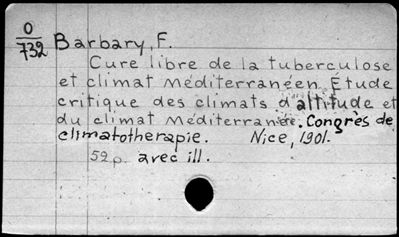 O
732
Barbary, F.
Cure libre de la tuberculose
et climat méditerranéen. Étude
critique des climats d'altitude et
du climat méditerranée. Congrès de
climatotherapie. Nice, 1901.
52 p. avec ill.